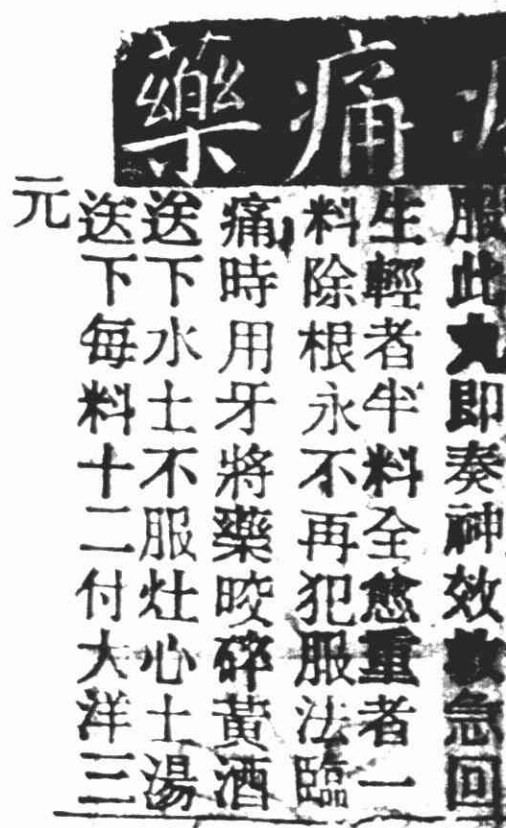 痛藥
服此丸即奏神效救急回
生輕者半料全愈重者一
料除根永不再犯服法臨
痛時用牙將藥咬碎黃酒
送下水土不服灶心土湯
送下每料十二付大洋三
元